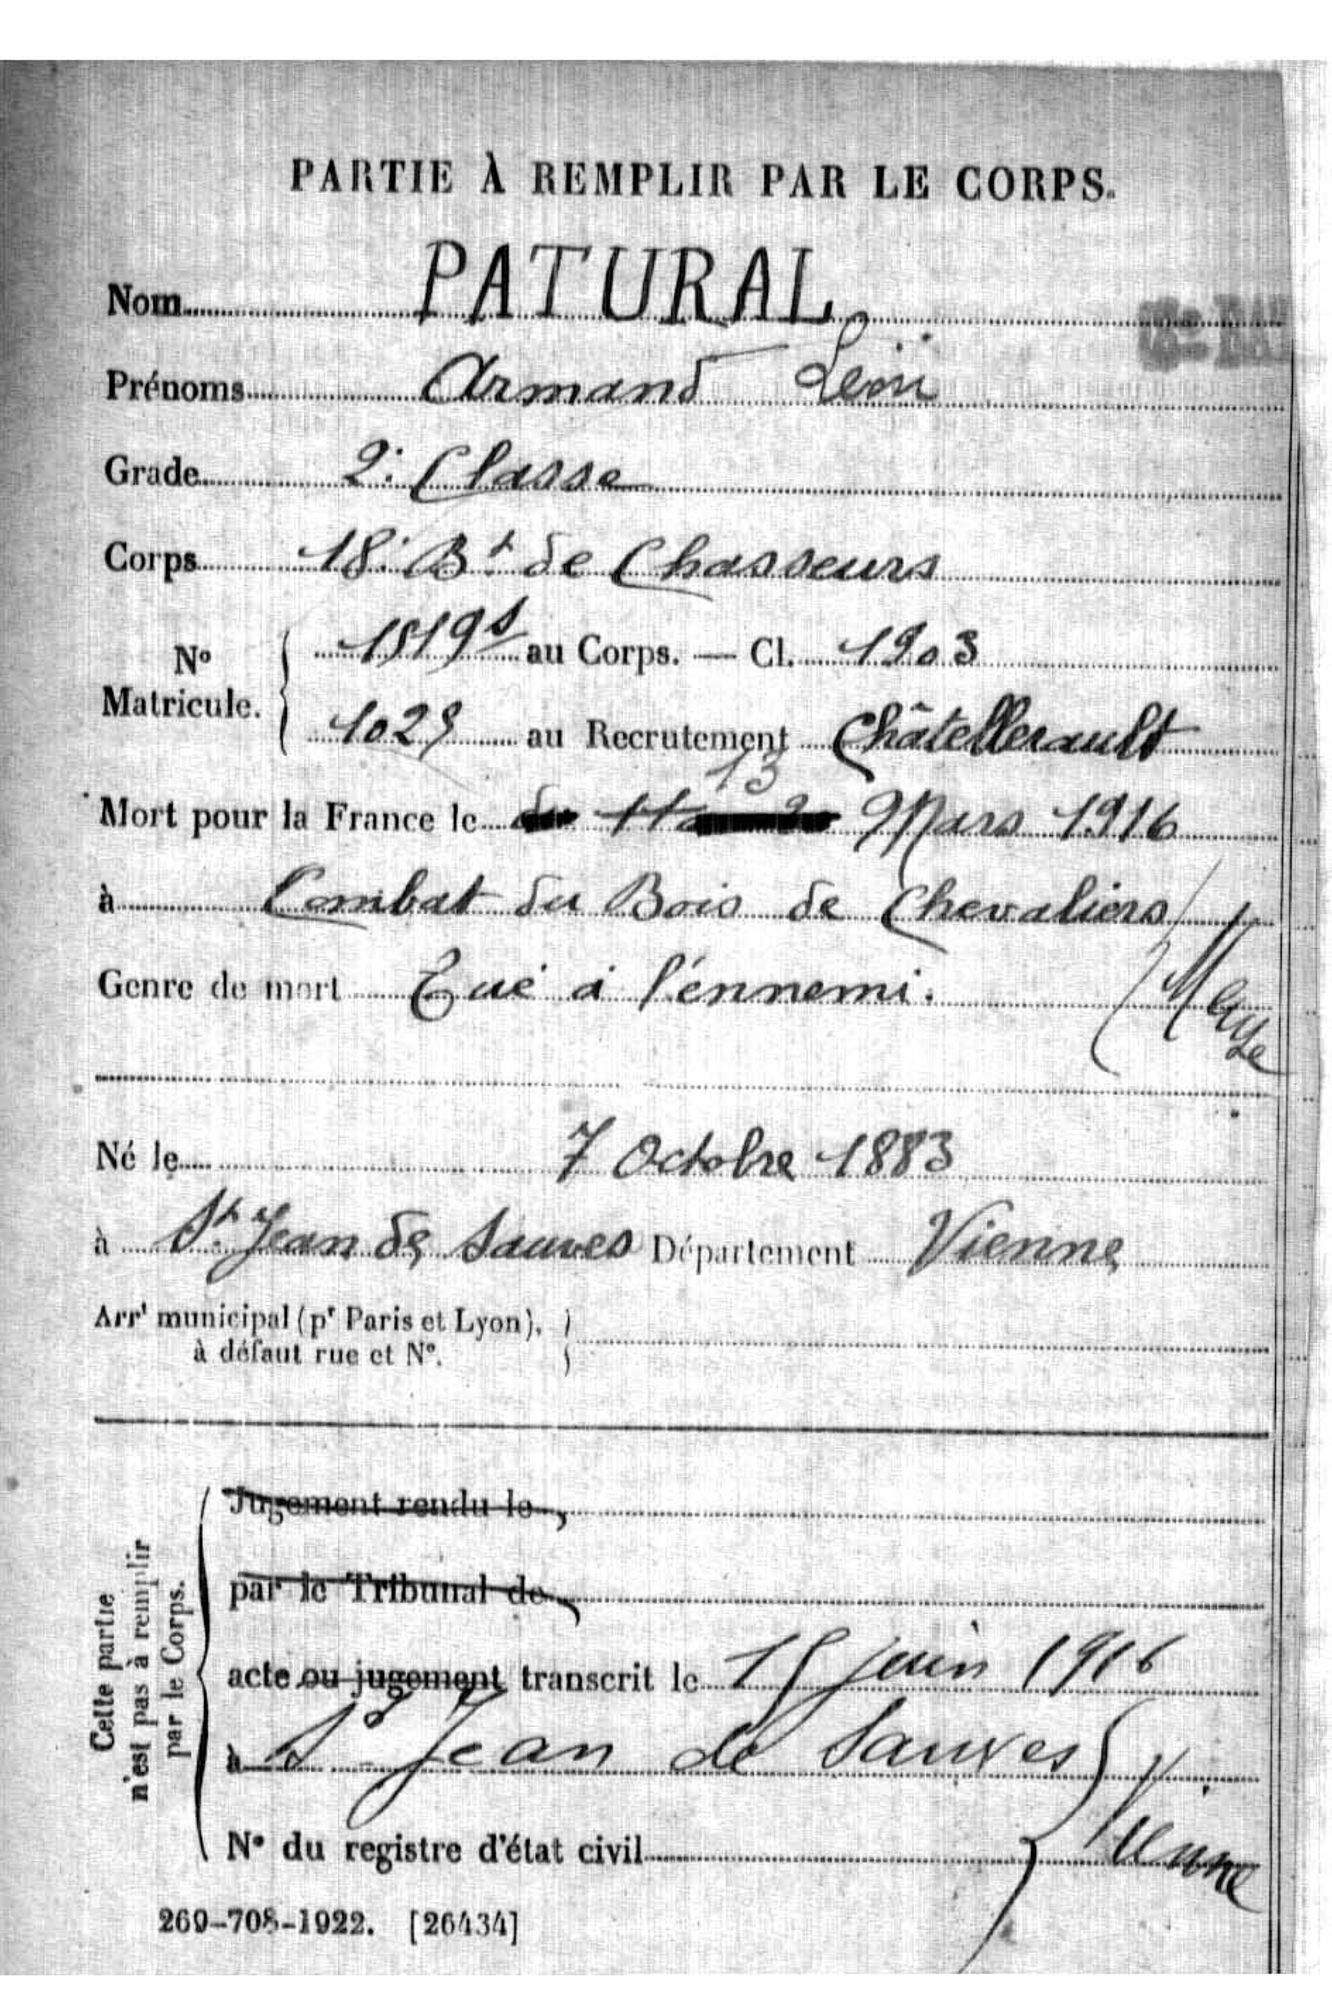 PARTIE À REMPLIR PAR LE CORPS.
Nom PATURAL
Prénoms Armand Léon
Grade 2e Classe
Corps 18e Bt de Chasseurs
No Matricule. au Corps. — Cl. 1903
au Recrutement Châtellerault
13
Mort pour la France le Mars 1916
à Combat du Bois de Chevaliers
(Meuse
Genre de mort Tué à l'énnemi.
Né le 7 Octobre 1883
à St Jean de Sauves Département Vienne
Arrt municipal (pr Paris et Lyon),
à défaut rue et No.
Cette partie
n'est pas à remplir
par le Corps.
Jugement rendu le
par le Tribunal de
acte ou jugement transcrit le 15 juin 1916
à St Jean de Sauves
Vienne
No du registre d'état civil
269-708-1922. [26434]